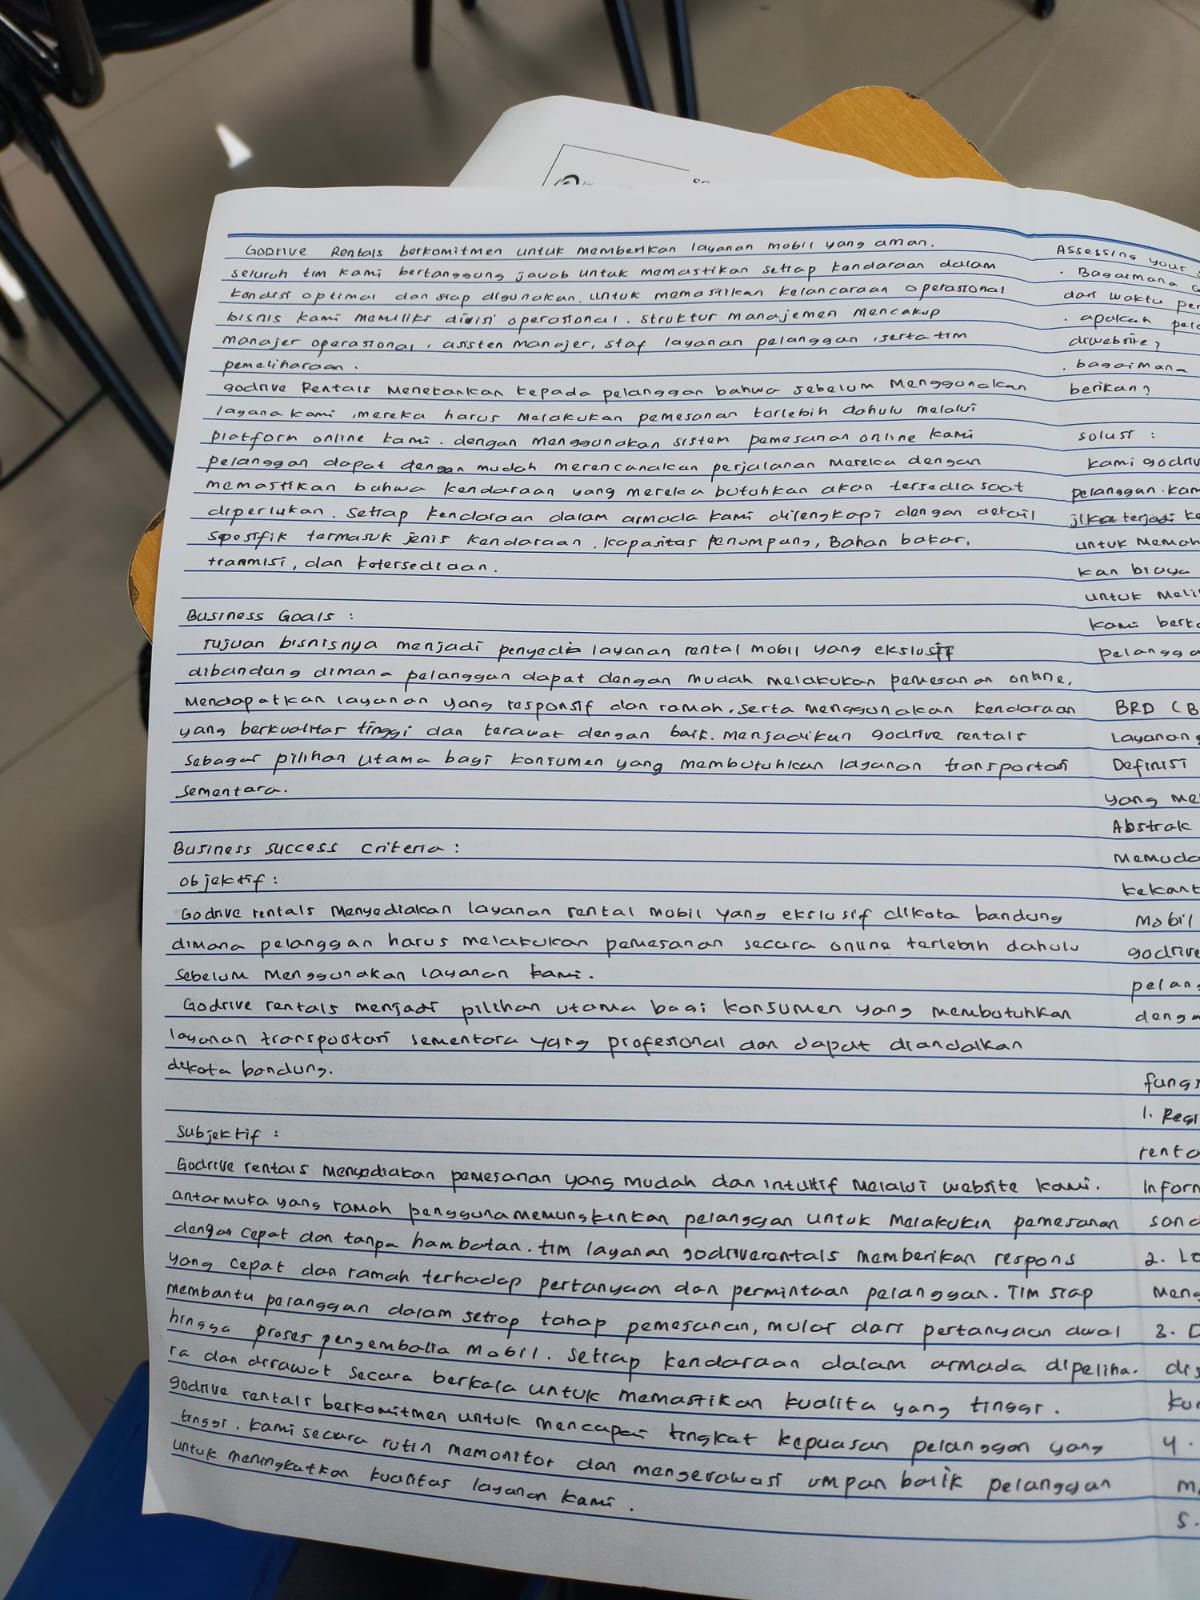 Godrive Rentals berkomitmen untuk memberikan layanan mobil yang aman.
seluruh tim kami bertanggung jawab untuk memastikan setiap kendaraan dalam
kondisi optimal dan siap digunakan. untuk memastikan kelancaraan operasional
bisnis kami memiliki divisi operasional. struktur manajemen mencakup
manajer operasional, asisten manajer, staf layanan pelanggan, serta tim
pemeliharaan.
godrive Rentals Menekankan kepada pelanggan bahwa sebelum Menggunakan
layana kami, mereka harus Melakukan pemesanan terlebih dahulu melalui
platform online kami. dengan menggunakan sistem pemesanan online kami
pelanggan dapat dengan mudah merencanakan perjalanan Mereka dengan
memastikan bahwa kendaraan yang mereka butuhkan akan tersedia saat
diperlukan. setiap kendaraan dalam armada kami dilengkapi dengan detail
spesifik termasuk jenis kendaraan, kapasitas penumpang, Bahan bakar,
tranmisi, dan ketersediaan.
Business Goals :
Tujuan bisnisnya menjadi penyedia layanan rental mobil yang ekslusif
dibandung dimana pelanggan dapat dengan mudah melakukan pemesanan online,
Mendapatkan layanan yang responsif dan ramah, serta menggunakan kendaraan
yang berkualitas tinggi dan terawat dengan baik. Menjadikan godrive rentals
sebagai pilihan utama bagi konsumen yang membutuhkan layanan transportasi
sementara.
Business success criteria :
objektif :
Godrive rentals Menyediakan layanan rental mobil yang ekslusif dikota bandung
dimana pelanggan harus melakukan pemesanan secara online terlebih dahulu
sebelum menggunakan layanan kami.
Godrive rentals menjadi pilihan utama bagi konsumen yang membutuhkan
layanan transpostasi sementara yang profesional dan dapat diandalkan
dikota bandung.
subjektif :
Godrive rentals menyediakan pemesanan yang mudah dan intuitif melalui website kami.
antarmuka yang ramah pengguna memungkinkan pelanggan untuk Melakukan pemesanan
dengan cepat dan tanpa hambatan. tim layanan godriverentals memberikan respons
yang cepat dan ramah terhadap pertanyaan dan permintaan pelanggan. Tim siap
membantu pelanggan dalam setiap tahap pemesanan, mulai dari pertanyaan awal
hingga proses pengembalia mobil. setiap kendaraan dalam armada dipeliha-
ra dan dirawat secara berkala untuk memastikan kualita yang tinggi.
godrive rentals berkomitmen untuk mencapai tingkat kepuasan pelanggan yang
tinggi. kami secara rutin memonitor dan mengevawasi umpan balik pelanggan
untuk meningkatkan kualitas layanan kami.
Assessing your
. Bagaimana
dari waktu
. apakah
diwebsite?
. bagaimana
berikan?
solusi :
kami
pelanggan. kam
jika terjadi
untuk
kan biaya
untuk
kami
BRD (B
Layanan
Definisi
yang
Abstrak
mobil
godrive
1.
2.
3.
4.
5.